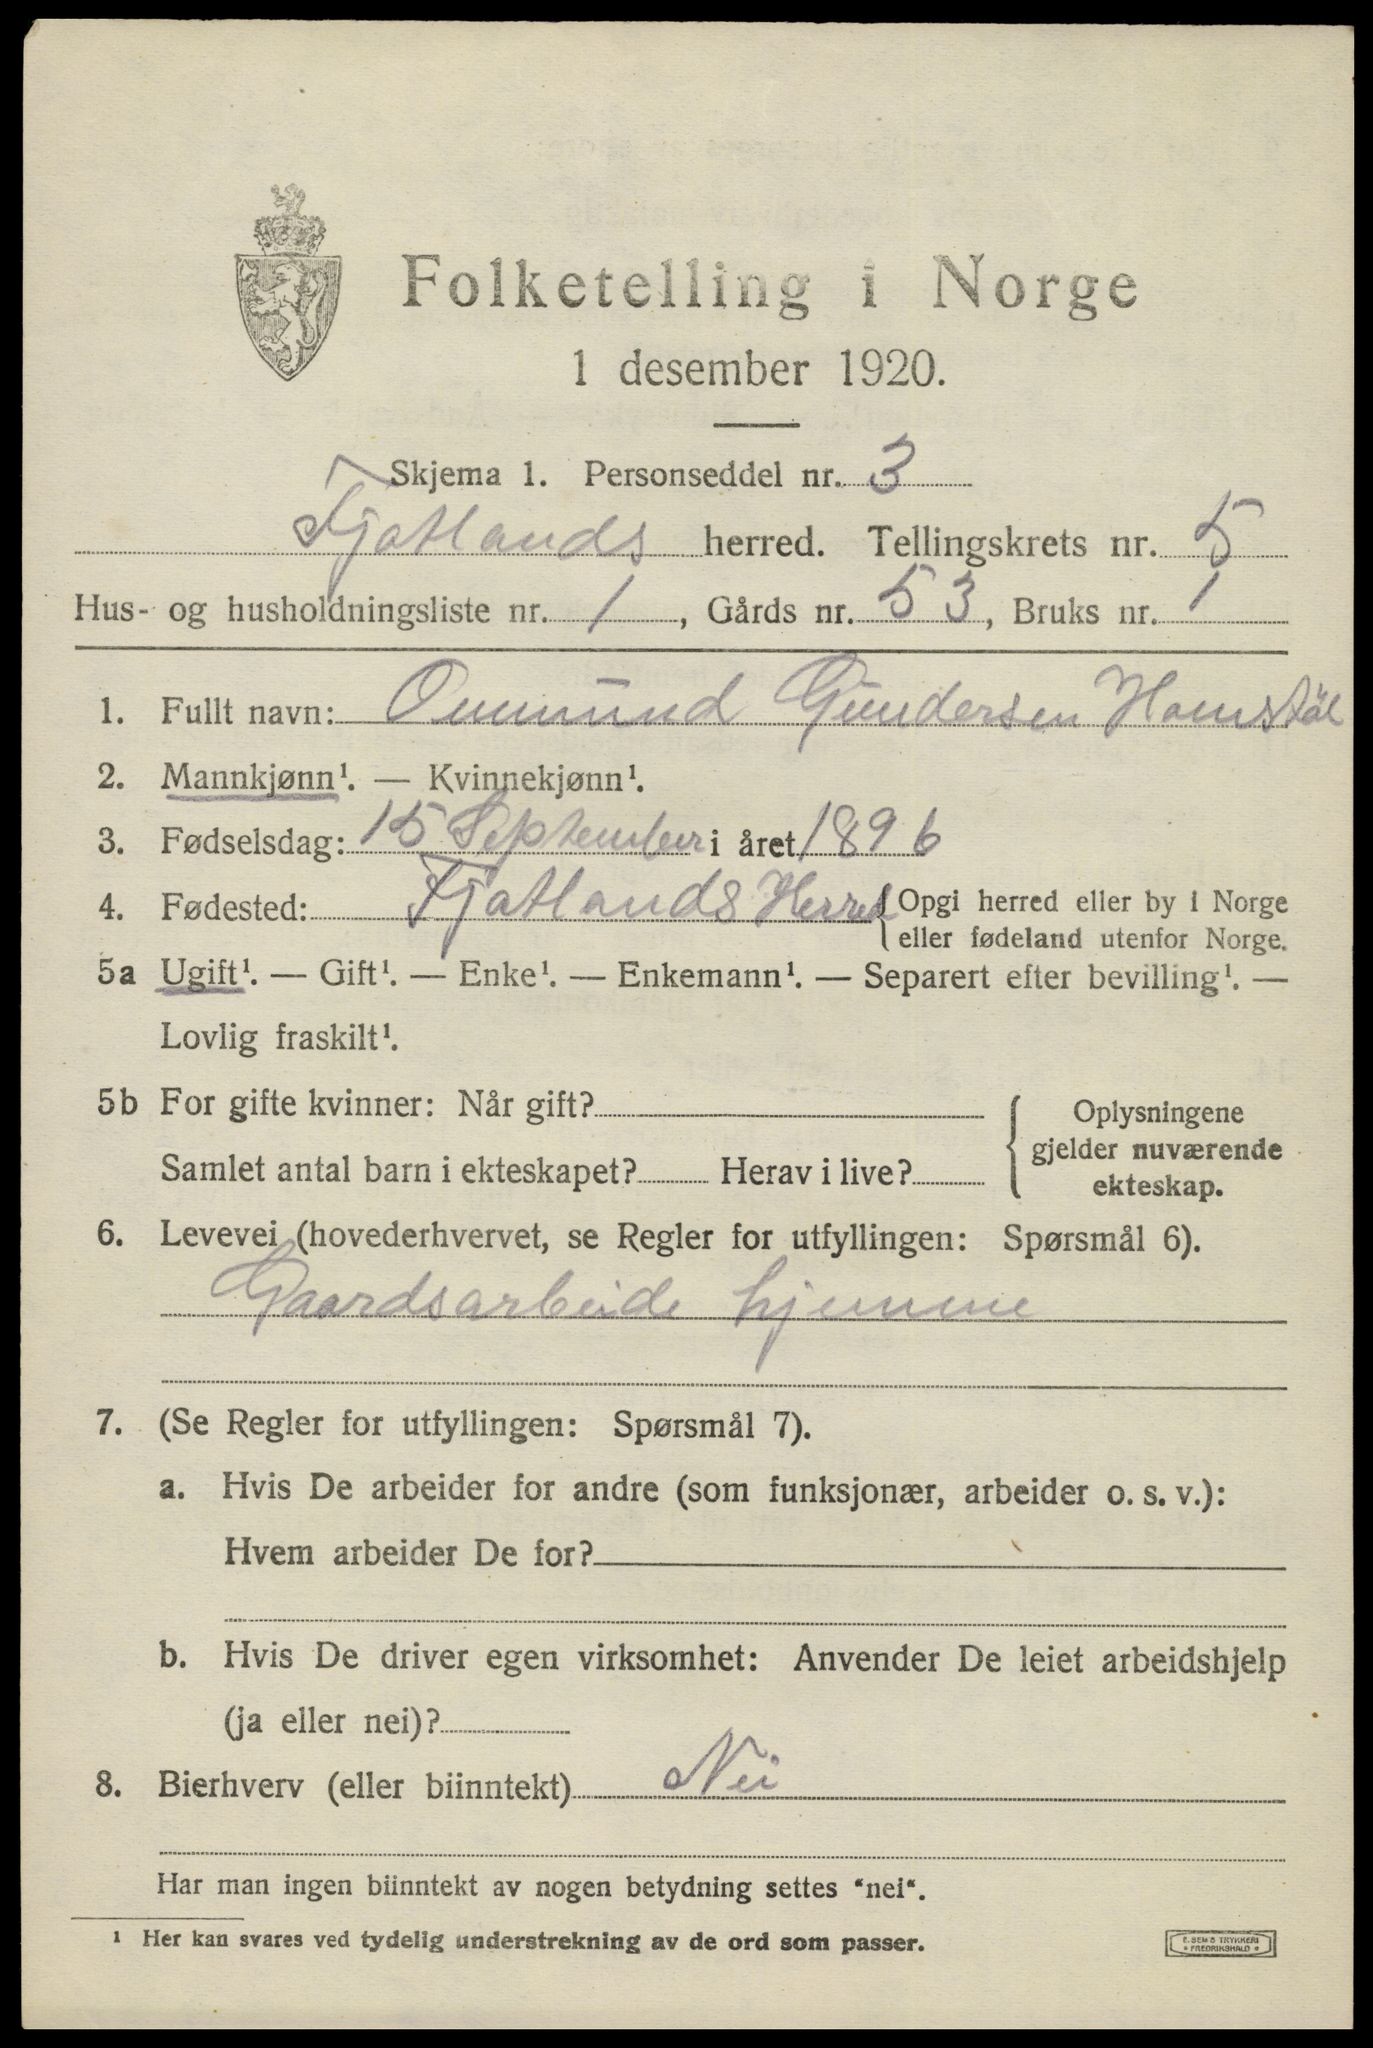 Folketelling i Norge
1 desember 1920.
Skjema 1. Personseddel nr. 3
Fjotlands herred. Tellingskrets nr. 5
Hus- og husholdningsliste nr. 1, Gårds nr. 53, Bruks nr. 1
1. Fullt navn: Ommund Gundersen Homstøl
2. Mannkjønn¹. — Kvinnekjønn¹.
3. Fødselsdag: 15 September i året 1896
4. Fødested: Fjotlands Herred { Opgi herred eller by i Norge
eller fødeland utenfor Norge.
5a Ugift¹. — Gift¹. — Enke¹. — Enkemann¹. — Separert efter bevilling¹. —
Lovlig fraskilt¹.
5b For gifte kvinner: Når gift?
Samlet antal barn i ekteskapet? Herav i live?
Oplysningene
gjelder nuværende
ekteskap.
6. Levevei (hovederhvervet, se Regler for utfyllingen: Spørsmål 6).
Gaardsarbeide hjemme
7. (Se Regler for utfyllingen: Spørsmål 7).
a. Hvis De arbeider for andre (som funksjonær, arbeider o. s. v.):
Hvem arbeider De for?
b. Hvis De driver egen virksomhet: Anvender De leiet arbeidshjelp
(ja eller nei)?
8. Bierhverv (eller biinntekt) Nei
Har man ingen biinntekt av nogen betydning settes "nei".
¹ Her kan svares ved tydelig understrekning av de ord som passer.
E. SEM'S TRYKKERI
* FREDRIKSHALD *